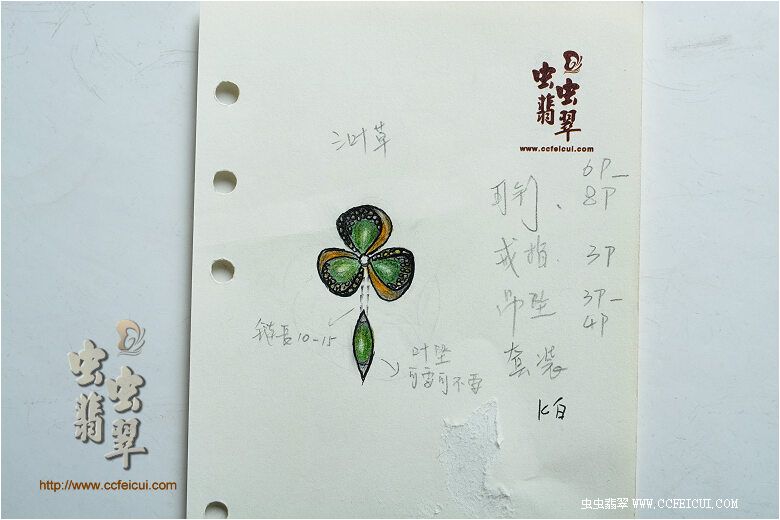 虫虫翡翠
www.ccfeicui.com
三叶草
耳钉、 6P-8P
戒指. 3P
吊坠 3P-4P
套装
k白
链长10-15
叶坠
可要可不要
虫虫翡翠
http://www.ccfeicui.com
虫虫翡翠 WWW.CCFEICUI.COM